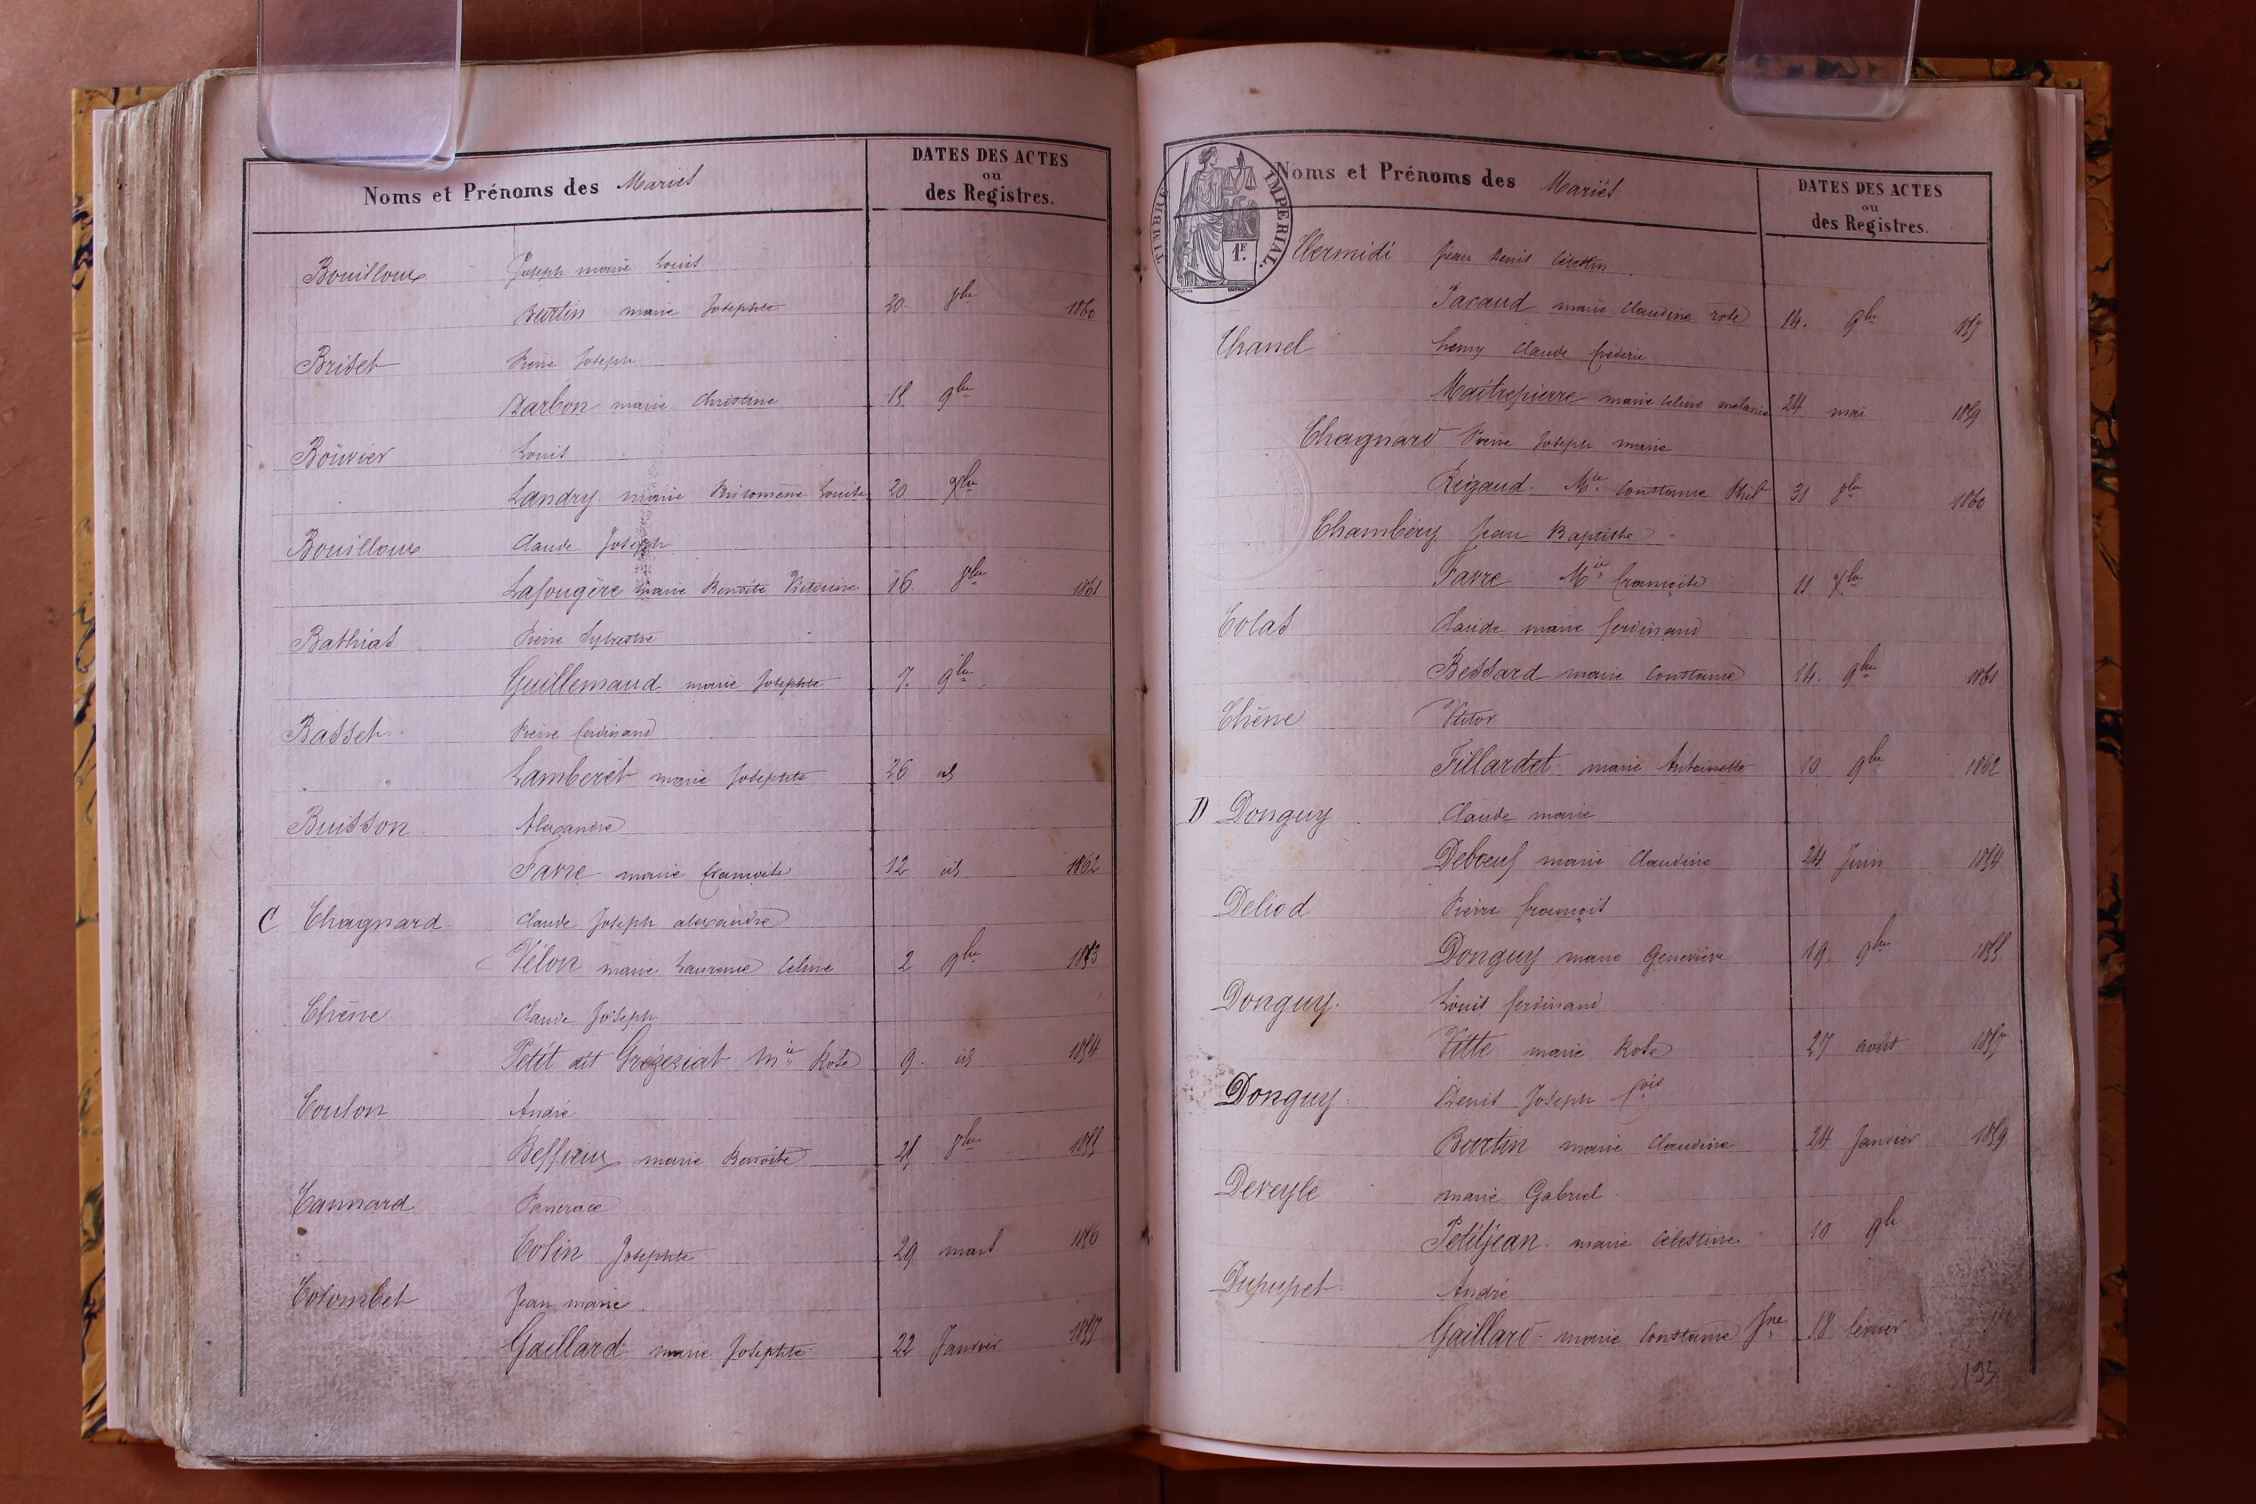 Noms et Prénoms des Mariés
DATES DES ACTES
ou
des Registres.
Bouilloux Joseph marie Louis
Burtin marie Josephte 20 8bre 1860
Bridet Pierre Joseph
Darbon marie Christine 18 9bre
Bouvier Louis
Landry marie Philomène Louise 20 Xbre
Bouilloux Claude Joseph
Lafougère marie Benoite Victorine 16 8bre 1861
Bathias Pierre Sylvestre
Guillemaud marie Josephte 7 9bre
Basset Pierre ferdinand
Lamberet marie Josephte 26 id
Buisson Alexandre
Favre marie françoise 12 id 1862
C Chagnard Claude Joseph alexandre
Vélon marie Laurence Celine 2 9bre 1853
Chêne Claude Joseph
Petit dit Grégeriat Mie Rose 9 id 1854
Coulon André
Beffieux marie Benoite 28 8bre 1855
Cannard Pancrace
Colin Josephte 29 mars 1856
Colombet Jean marie
Gaillard marie Josephte 22 Janvier 1857
TIMBRE IMPERIAL.
1F.
Noms et Prénoms des Mariés
DATES DES ACTES
ou
des Registres.
Clermidi Jean Denis Célestin
Pacaud marie Claudine rose 14 9bre 1857
Chanel Lemy Claude frédéric
Maitrepierre marie Celine melanie 24 mai 1859
Chagnard Pierre Joseph marie
Rigaud Mie Constance 31 8bre 1860
Chambéry Jean Baptiste
Favre Mie françoise 11 Xbre
Colas Claude marie ferdinand
Bessard marie Constance 14 9bre 1861
Chêne Victor
Fillardet marie Antoinette 10 9bre 1862
D Donguy Claude marie
Deboeuf marie Claudine 24 Juin 1854
Deliod Pierre françois
Donguy marie Geneviève 19 9bre 1855
Donguy Louis ferdinand
Vitte marie Rose 27 août 1857
Donguy Denis Joseph fois
Burtin marie Claudine 24 Janvier 1859
Deveyle marie Gabriel
Petitjean marie Célestine 10 9bre
Dupupet André
Gaillard marie Constance Jne 18 février
193